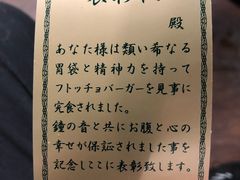 殿
あなた様は類い希なる
胃袋と精神力を持って
フトッチョバーガーを見事に
完食されました。
鐘の音と共にお腹と心の
幸せが保証されました事を
記念しここに表彰致します。